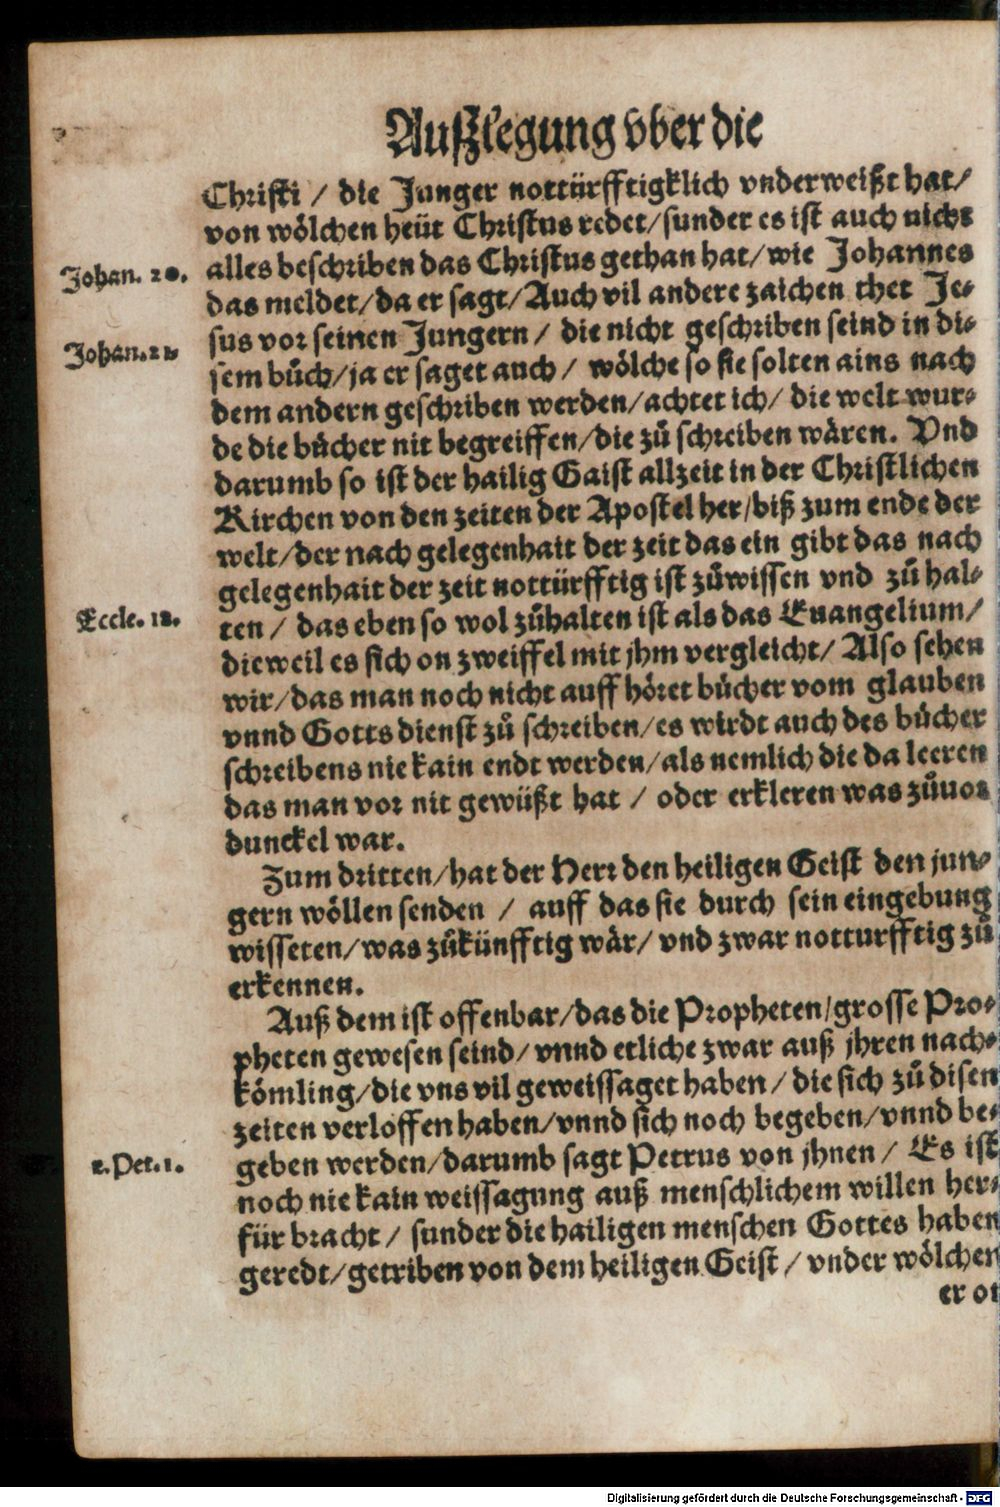 Außlegung vber die
Christi / die Junger nottürfftigklich vnderweißt hat/
von wölchen heüt Christus redet/sunder es ist auch nicht
alles beschriben das Christus gethan hat/wie Johannes
Johan. 20.
das meldet/da er sagt/Auch vil andere zaichen thet Je-
sus vor seinen Jungern / die nicht geschriben seind in di-
Johan. 21.
sem bůch/ja er saget auch / wölche so sie solten ains nach
dem andern geschriben werden/achtet ich/ die welt wur-
de die bücher nit begreiffen/die zů schreiben wären. Vnd
darumb so ist der hailig Gaist allzeit in der Christlichen
Kirchen von den zeiten der Apostel her/biß zum ende der
welt/der nach gelegenhait der zeit das ein gibt das nach
gelegenhait der zeit nottürfftig ist zůwissen vnd zů hal-
Eccle. 12.
ten / das eben so wol zůhalten ist als das Euangelium/
dieweil es sich on zweiffel mit jhm vergleicht/ Also sehen
wir/das man noch nicht auff höret bücher vom glauben
vnnd Gotts dienst zů schreiben/es wirdt auch des bücher
schreibens nie kain endt werden/als nemlich die da leeren
das man vor nit gewüßt hat / oder erkleren was zůuor
dunckel war.
Zum dritten/hat der Herr den heiligen Geist den jun-
gern wöllen senden / auff das sie durch sein eingebung
wisseten/was zůkünfftig wär/ vnd zwar notturfftig zů
erkennen.
Auß dem ist offenbar/das die Propheten/grosse Pro-
pheten gewesen seind/vnnd etliche zwar auß jhren nach-
kömling/die vns vil geweissaget haben / die sich zů disen
zeiten verloffen haben/vnnd sich noch begeben/vnnd be-
2. Pet. 1.
geben werden/darumb sagt Petrus von jhnen / Es ist
noch nie kain weissagung auß menschlichem willen her-
für bracht / sunder die hailigen menschen Gottes haben
geredt/getriben von dem heiligen Geist / vnder wölchen
er
Digitalisierung gefördert durch die Deutsche Forschungsgemeinschaft - DFG